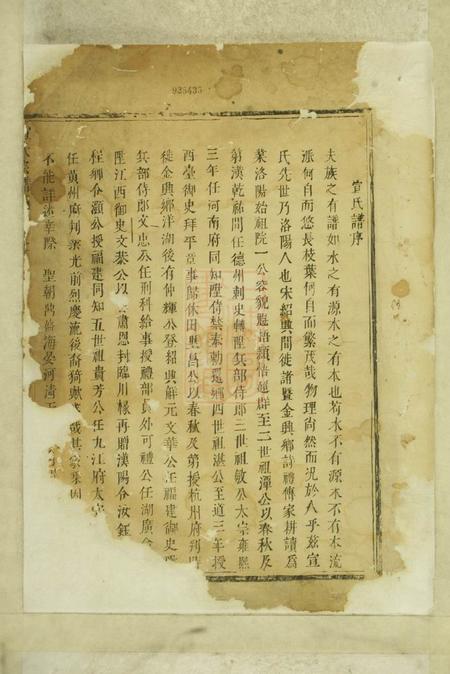 925435
宣氏譜序
夫族之有譜如水之有源木之有本也苟水不有源木不有本流
派何自而悠長枝葉何自而繁茂哉物理尚然而况於人乎茲宣
氏先世乃洛陽人也宋紹興間徙諸暨金興鄉詩禮傳家耕讀爲
業洛陽始祖院一公容貌魁梧穎悟超群至二世祖潭公以春秋及
第漢乾祐間任德州刺史轉陞兵部侍郎三世祖敏公太宗雍熙
三年任河南府同知陞侍禁奉勅還鄉四世祖湛公至道三年授
西臺御史拜平章事歸休田里昌公以春秋及第授杭州府判
徙金興鄉洋湖後有仲輝公登紹興解元文華公任福建御史
兵部侍郎文忠公任刑科給事授禮部員外可禮公任湖廣
陞江西御史文恭公以 肅恩封臨川椽再贈漢陽令汝鈺
程鄉令灝公授福建同知五世祖貴芳公任九江府太守
任黃州府判榮光前烈慶流後裔猗歟 哉其
不能詳述幸際 聖朝 海晏河清